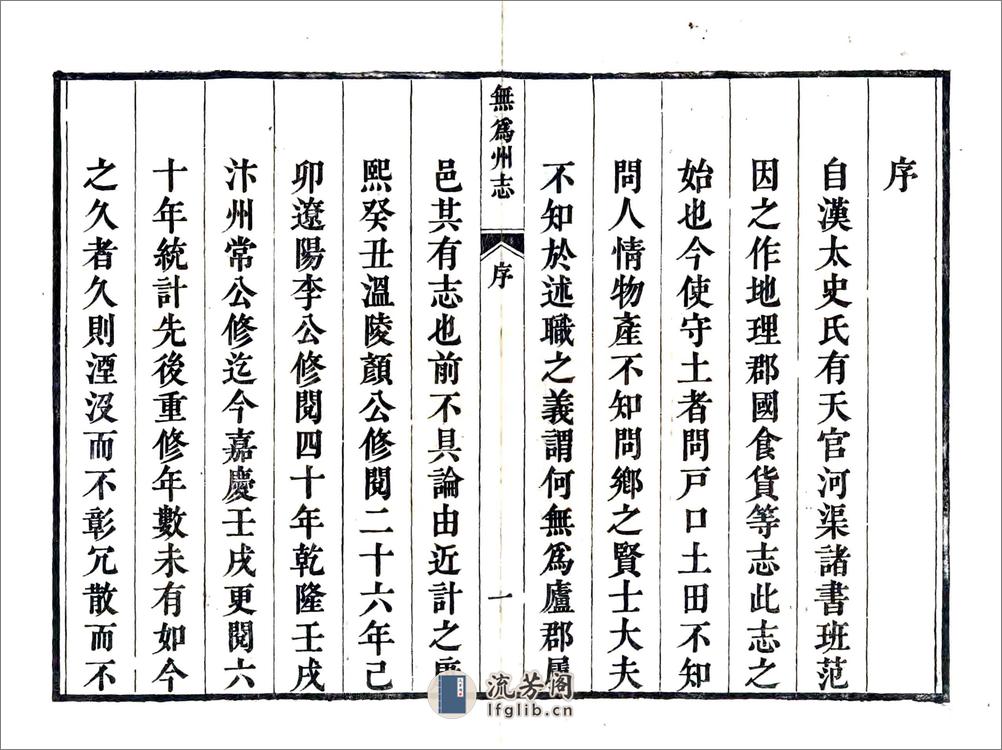 序
自漢太史氏有天官河渠諸書班范
因之作地理郡國食貨等志此志之
始也今使守土者問戸口土田不知
問人情物產不知問鄉之賢士大夫
不知於述職之義謂何無爲廬郡屬
無爲州志 序 一
邑其有志也前不具論由近計之康
熙癸丑溫陵顏公修閱二十六年己
卯遼陽李公修閱四十年乾隆壬戌
汴州常公修迄今嘉慶壬戌更閱六
十年統計先後重修年數未有如今
之久者久則湮沒而不彰冗散而不
流芳閣
lfglib.cn